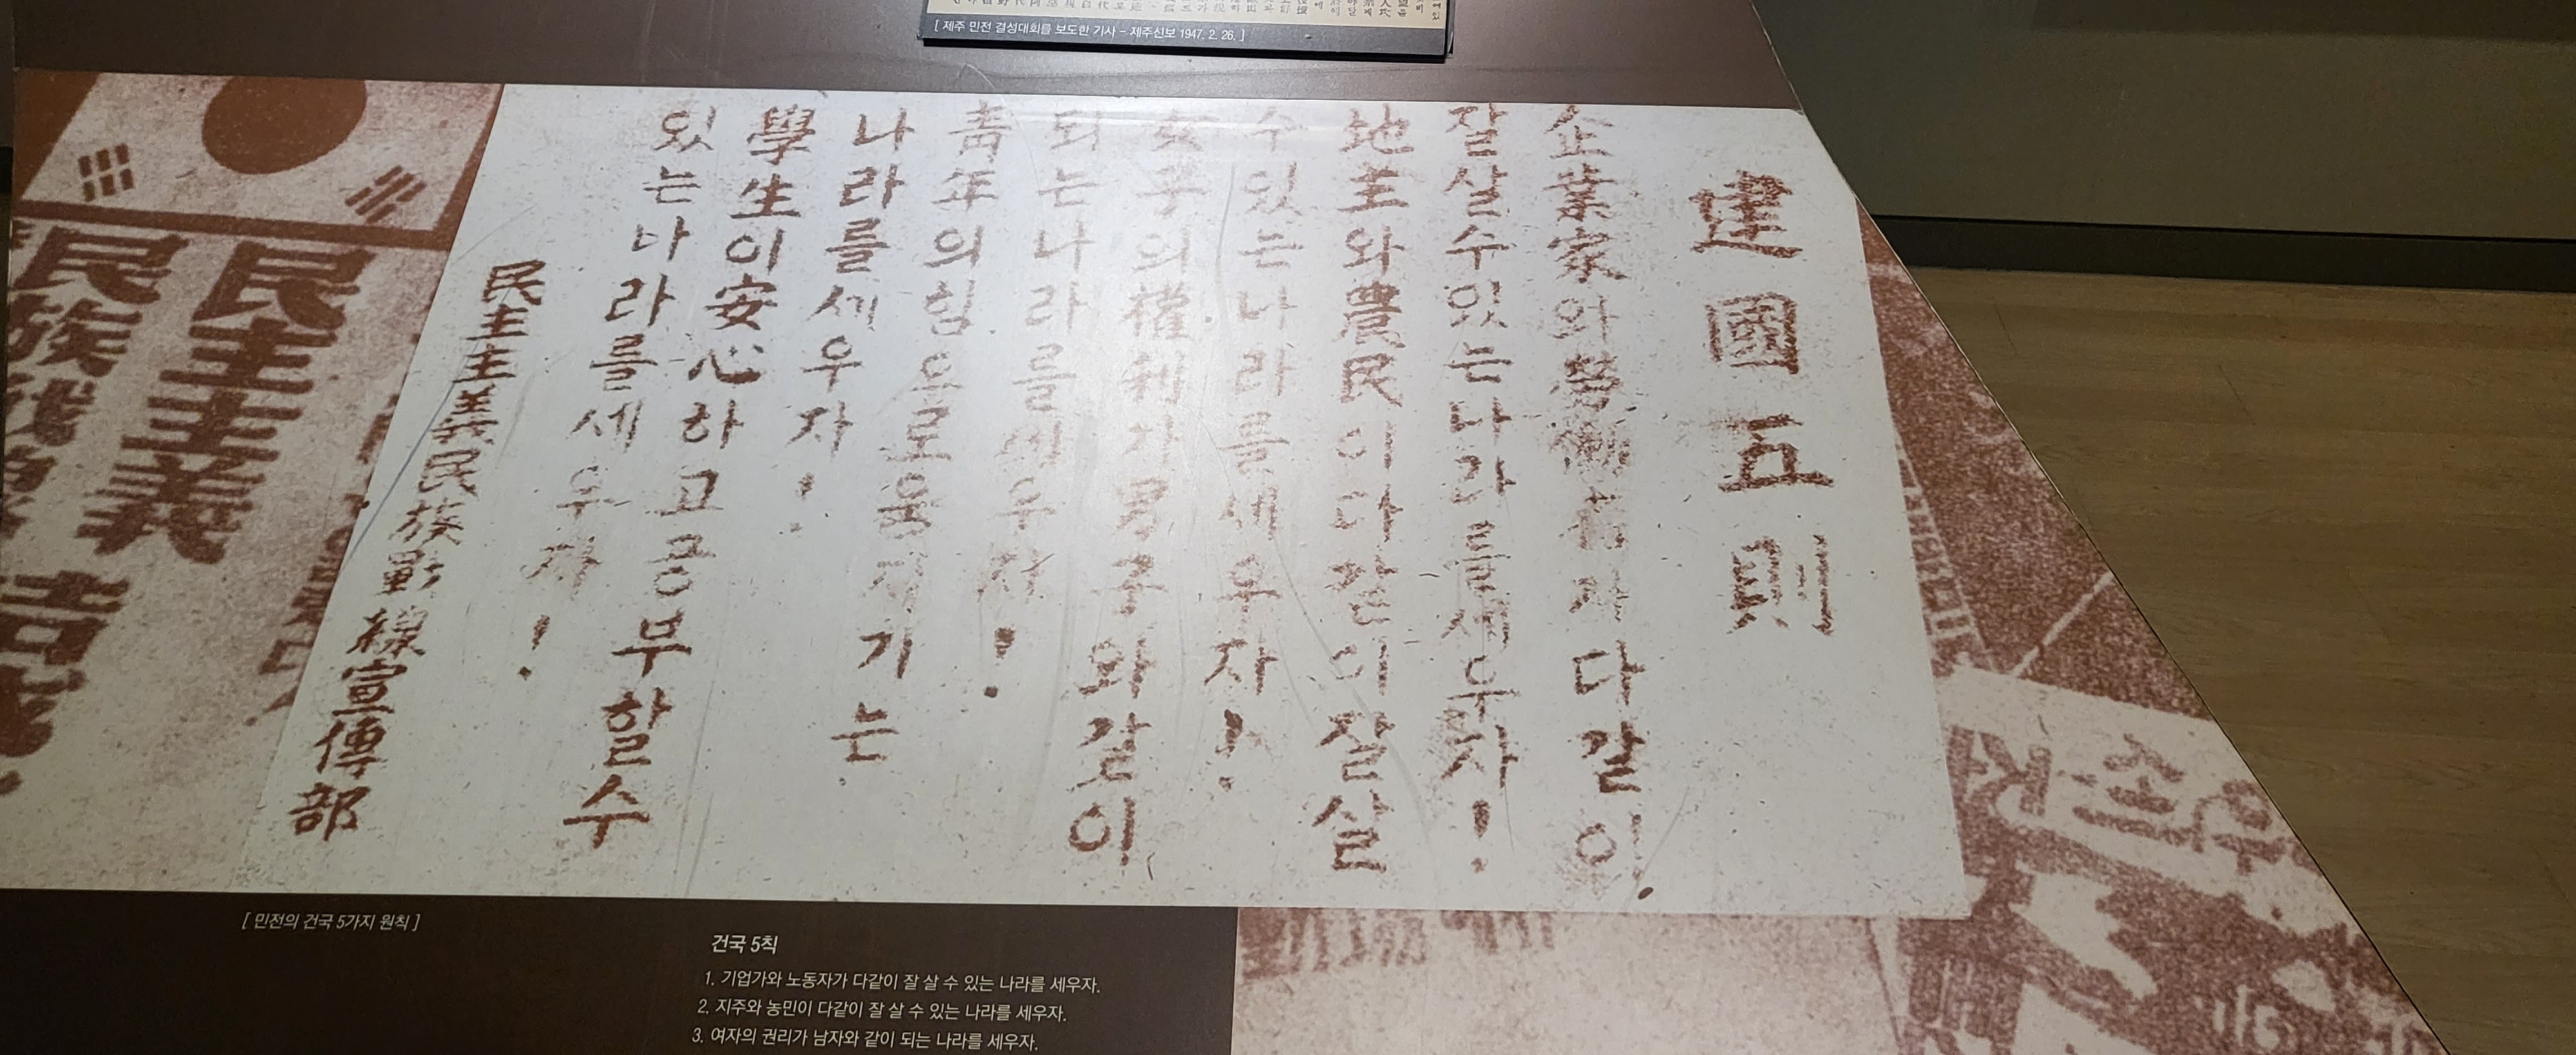 [ 제주 민전 결성대회를 보도한 기사 - 제주신보 1947. 2. 26. ]
建國五則
企業家와勞働者가다같이
잘살수있는나라를세우자!
地主와農民이다같이잘살
수있는나라를세우자!
女子의權利가男子와같이
되는나라를세우자!
靑年의힘으로움지기는
나라를세우자!
學生이安心하고공부할수
있는나라를세우자!
民主主義民族戰線宣傳部
民主主義
民族戰線
[ 민전의 건국 5가지 원칙 ]
건국 5칙
1. 기업가와 노동자가 다같이 잘 살 수 있는 나라를 세우자.
2. 지주와 농민이 다같이 잘 살 수 있는 나라를 세우자.
3. 여자의 권리가 남자와 같이 되는 나라를 세우자.